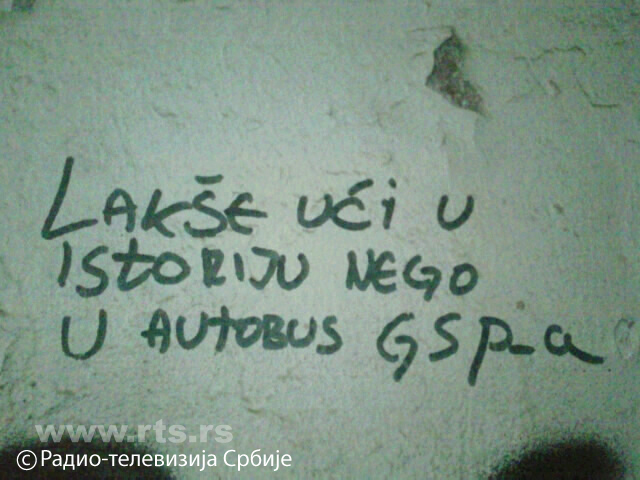 LAKŠE UĆi U
ISTORIJU NEGO
U AUTOBUS GSP-a
www.rts.rs
©Радио-телевизија Србије